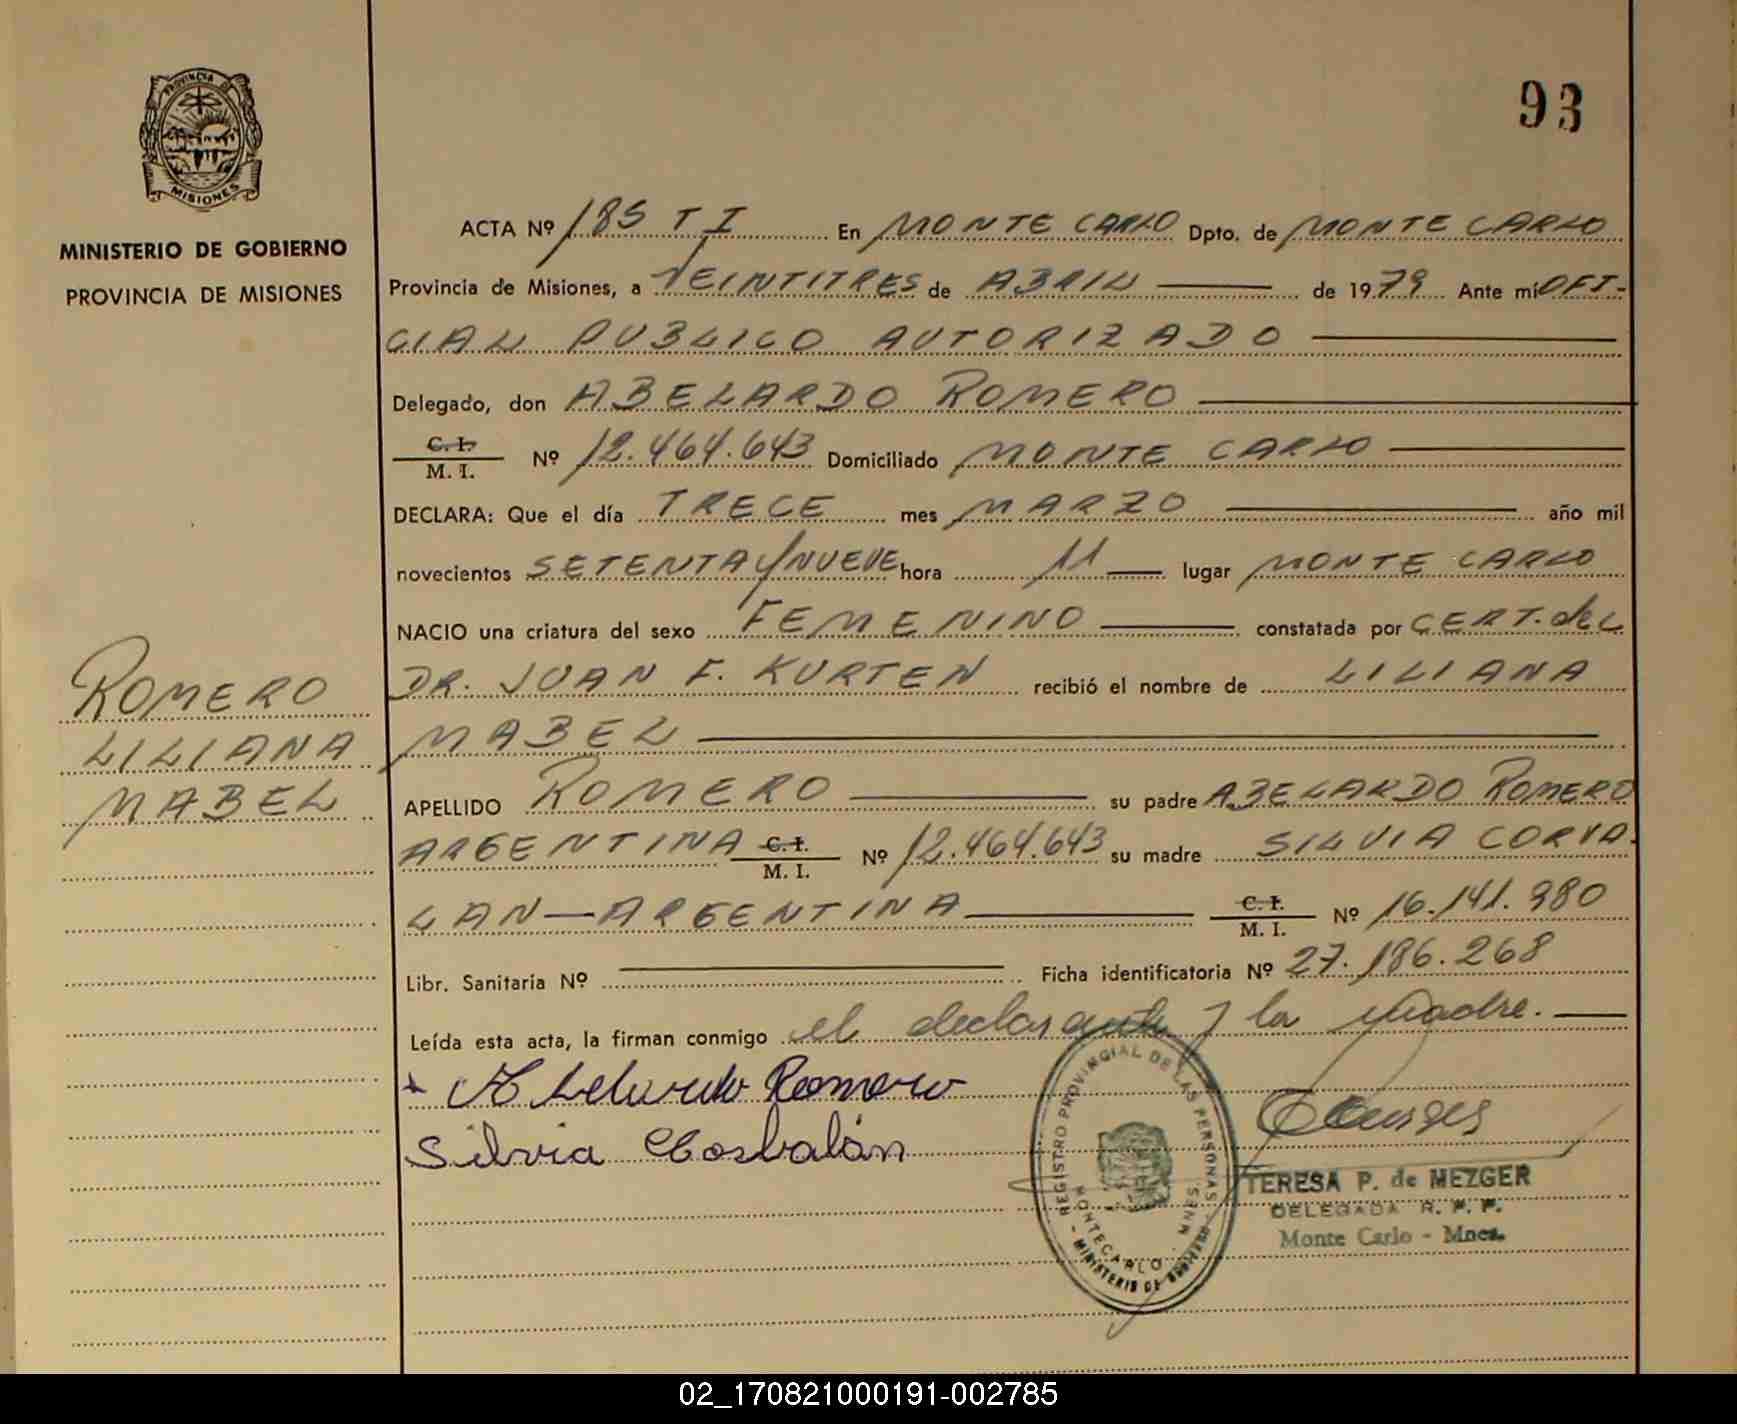 93
PROVINCIA DE
MISIONES
MINISTERIO DE GOBIERNO
PROVINCIA DE MISIONES
ACTA Nº 185 T I En MONTE CARLO Dpto. de MONTE CARLO
Provincia de Misiones, a VEINTITRES de ABRIL de 1979 Ante mí OFI-
CIAL PUBLICO AUTORIZADO
Delegado, don ABELARDO ROMERO
C. I.
M. I. Nº 12.464.643 Domiciliado MONTE CARLO
DECLARA: Que el día TRECE mes MARZO año mil
novecientos SETENTA Y NUEVE hora 11 lugar MONTE CARLO
NACIO una criatura del sexo FEMENINO constatada por CERT. del
DR. JUAN F. KURTEN recibió el nombre de LILIANA
MABEL
ROMERO
LILIANA
MABEL
APELLIDO ROMERO su padre ABELARDO ROMERO
ARGENTINA C. I.
M. I. Nº 12.464.643 su madre SILVIA CORVA-
LAN-ARGENTINA C. I.
M. I. Nº 16.141.980
Libr. Sanitaria Nº Ficha identificatoria Nº 27.186.268
Leída esta acta, la firman conmigo el declarante y la madre.
Abelardo Romero
Silvia Corbalán
REGISTRO PROVINCIAL DE LAS PERSONAS
MONTECARLO
MINISTERIO DE
TERESA P. de MEZGER
DELEGADA R. P. P.
Monte Carlo - Mnes.
02_170821000191-002785